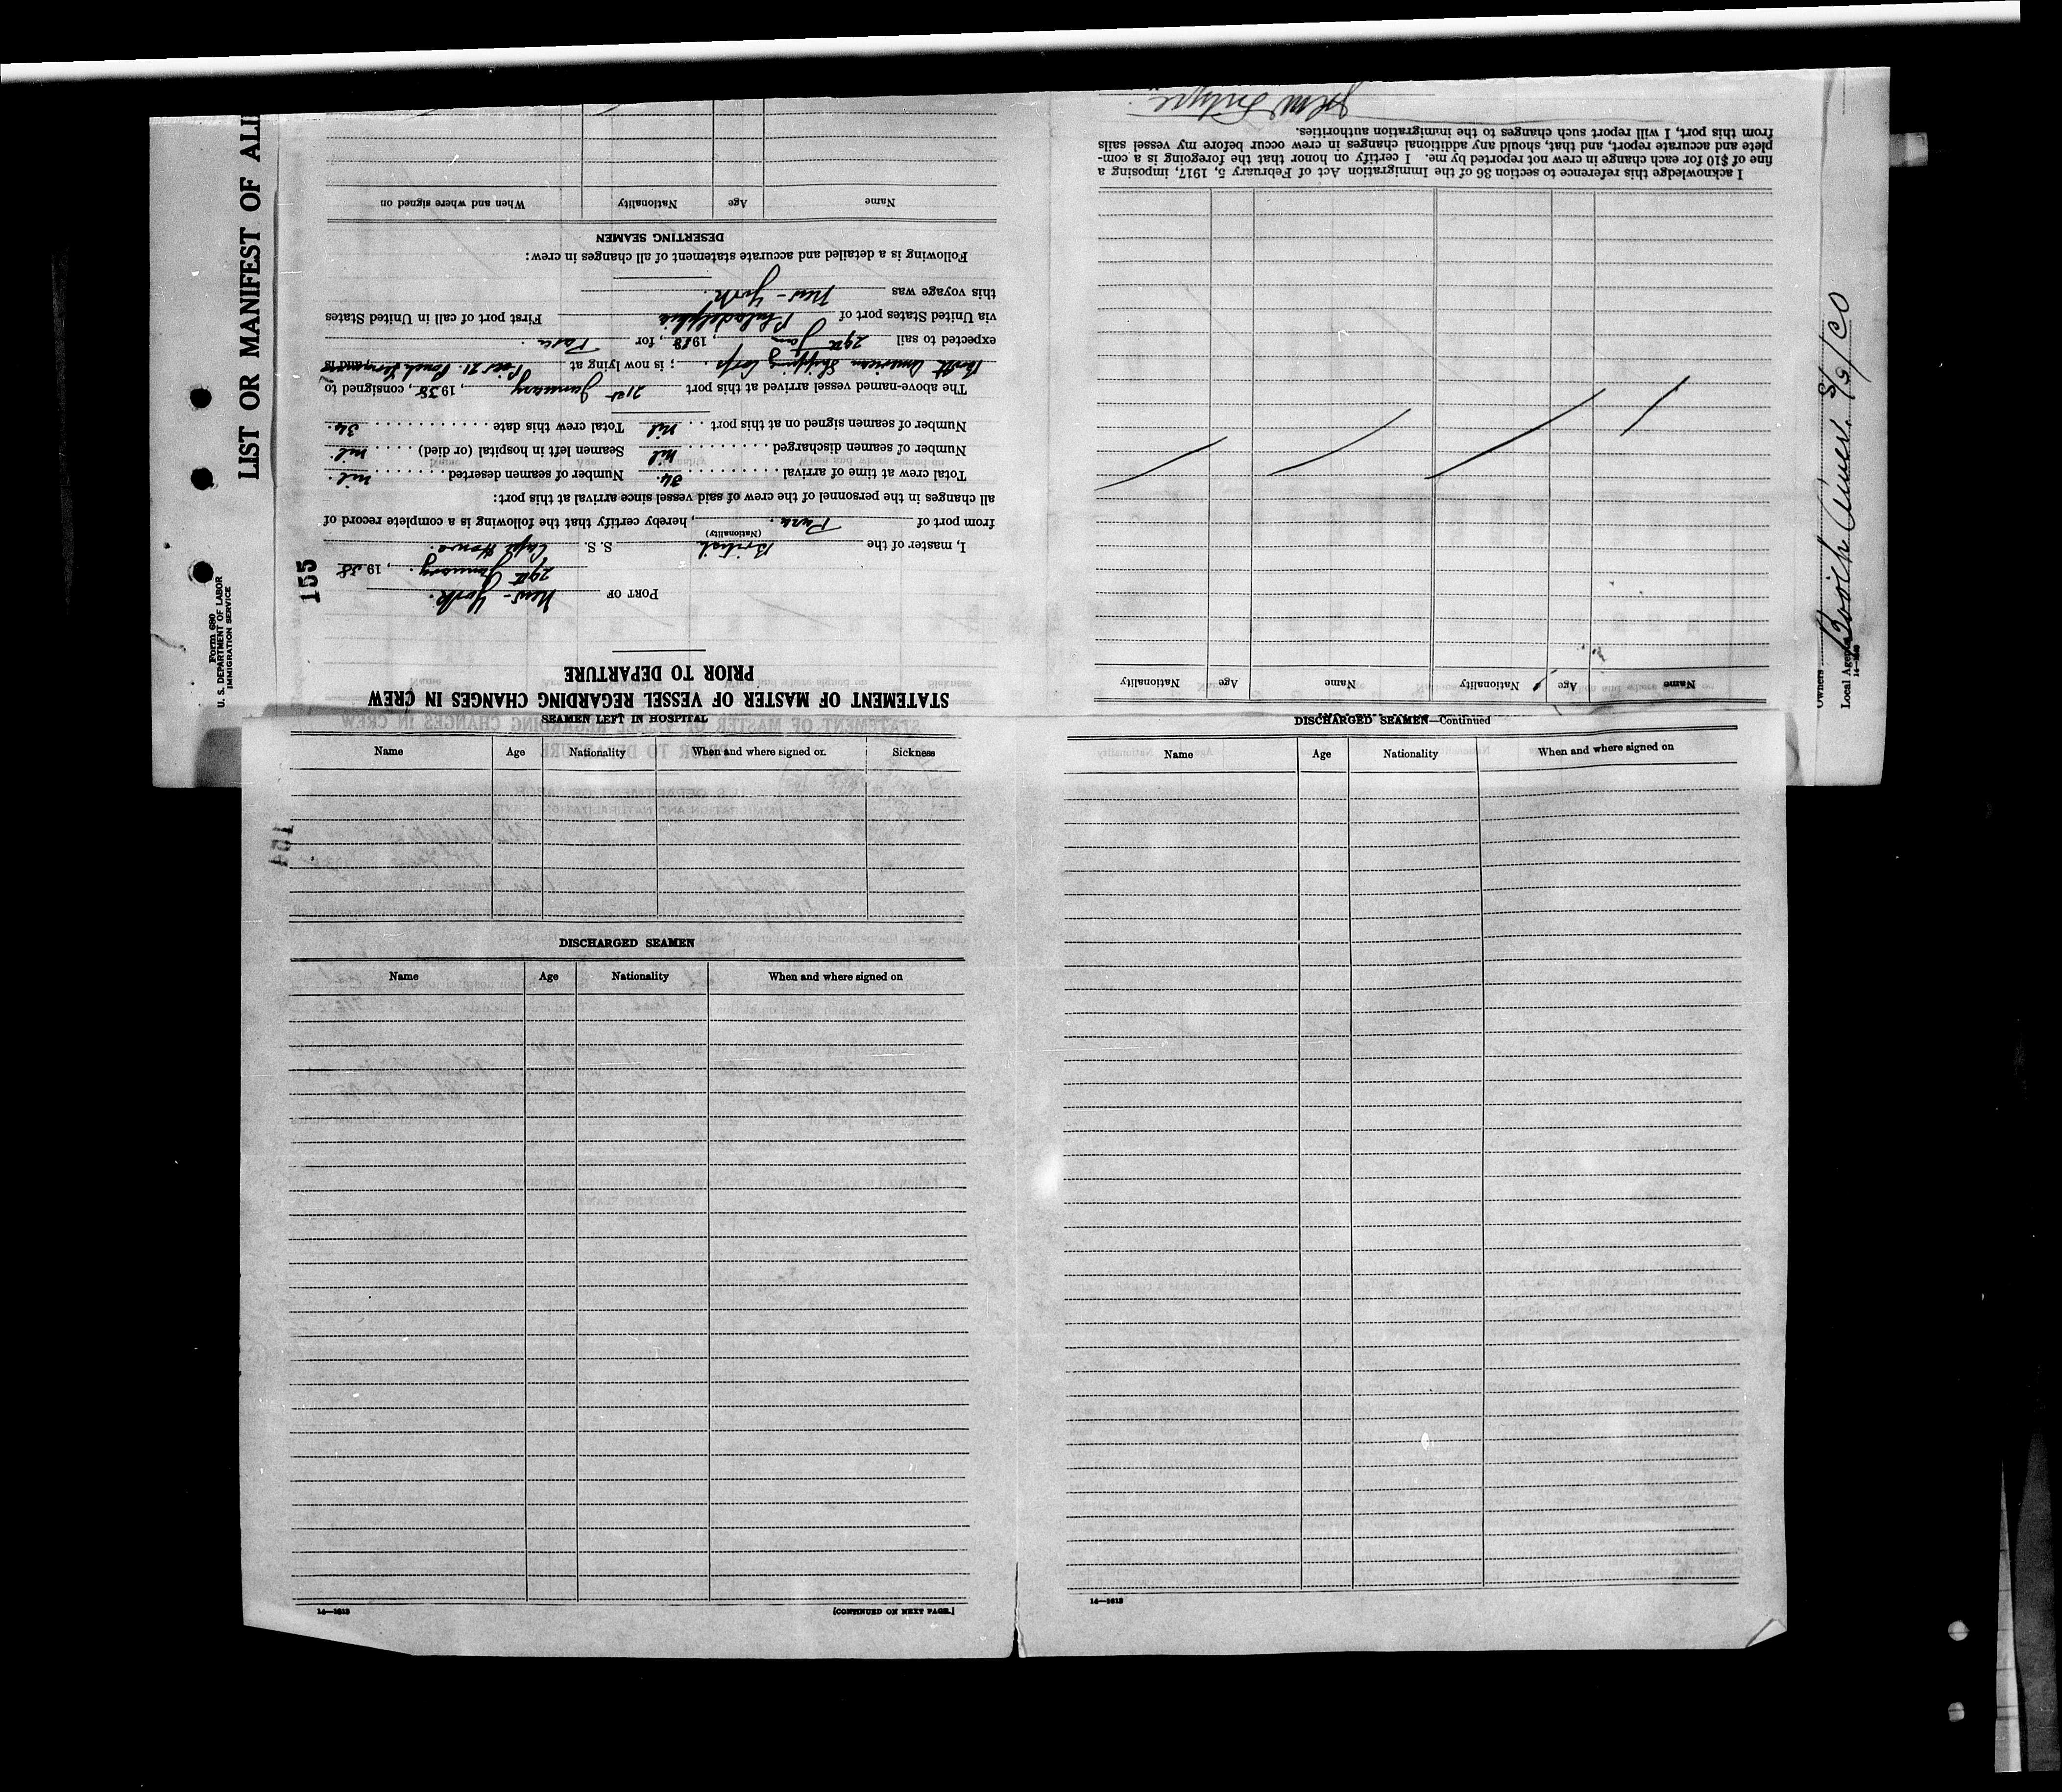 LIST OR MANIFEST OF ALI
Form 680
U. S. DEPARTMENT OF LABOR
IMMIGRATION SERVICE
155
STATEMENT OF MASTER OF VESSEL REGARDING CHANGES IN CREW
PRIOR TO DEPARTURE
PORT OF New-York.
29th January, 1938
I, master of the British S. S. Cape Howe.
(Nationality)
from port of Para, hereby certify that the following is a complete record of
all changes in the personnel of the crew of said vessel since arrival at this port:
Total crew at time of arrival 34. Number of seamen deserted nil.
Number of seamen discharged nil Seamen left in hospital (or died) nil.
Number of seamen signed on at this port nil Total crew this date 34.
The above-named vessel arrived at this port 21st January, 1938, consigned to
American Shipping Corp.; is now lying at Pier 21.
expected to sail 29th Jan, 1938, for Para.
via United States port of Philadelphia First port of call in United States
this voyage was New-York.
Following is a detailed and accurate statement of all changes in crew:
DESERTING SEAMEN
Name Age Nationality When and where signed on
Name Age Nationality Name Age Nationality
I acknowledge this reference to section 36 of the Immigration Act of February 5, 1917, imposing a
fine of $10 for each change in crew not reported by me. I certify on honor that the foregoing is a com-
plete and accurate report, and that, should any additional changes in crew occur before my vessel sails
from this port, I will report such changes to the immigration authorities.
Owners
Local Agents
SEAMEN LEFT IN HOSPITAL
Name Age Nationality When and where signed on Sickness
154
DISCHARGED SEAMEN
Name Age Nationality When and where signed on
14—1613
[CONTINUED ON NEXT PAGE.]
DISCHARGED SEAMEN—Continued
Name Age Nationality When and where signed on
14—1613